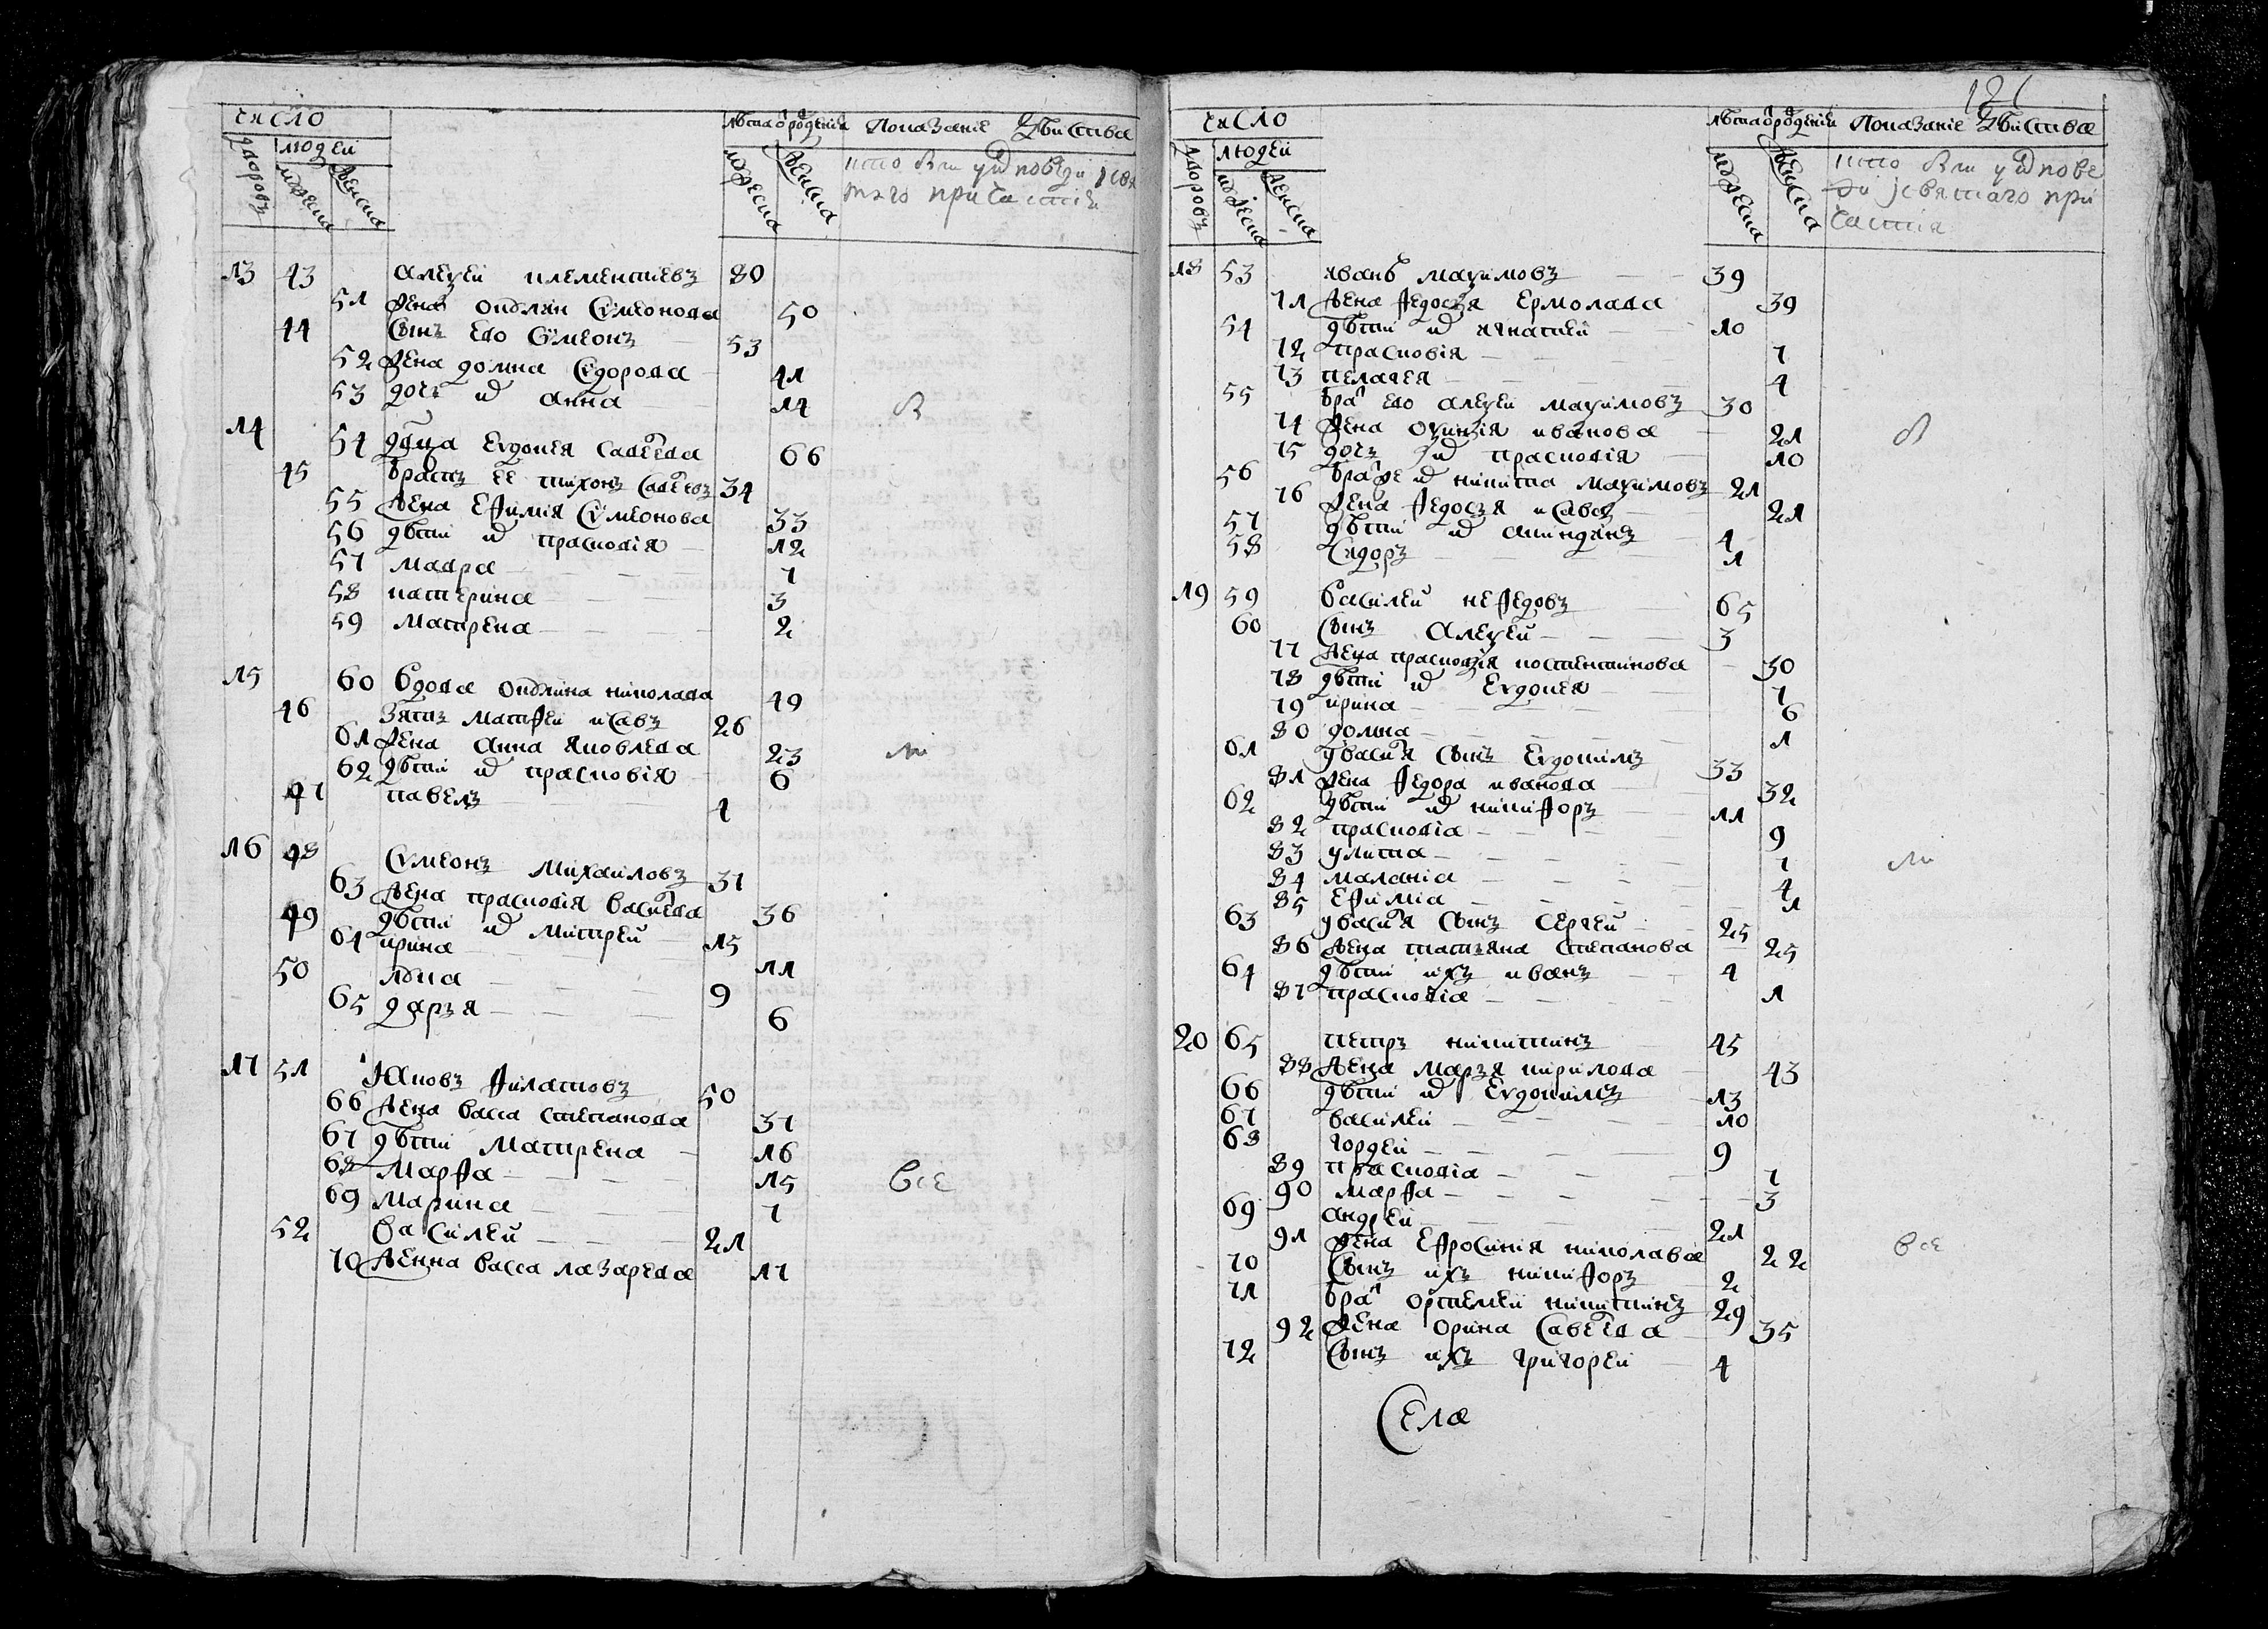 число
людей
дворовъ
мужеска
женска
лѣта от рожденія
мужеска
женска
Показаніе дѣйства
кто был у исповеди и свя
таго причастия
13 43 алеѯеи клементиевъ 80
51 жена акилин Сѵмеонова 50
44 Сынъ его Сѵмеонъ 53
52 жена домна Сидорова 41
53 дочь их анна 14
14
54 вдова Евдокея Савеева 66
45 братъ ее тихонъ Савеевъ 34
55 жена Ефимия Сѵмеонова 33
56 дѣти их прасковія 12
57 мавра 7
58 катерина 3
59 матрена 2
15 60 вдова акилина николава 49
46 зять матфеи исавъ 26
61 жена анна яковлева 23
62 дѣти их прасковія 6
47 павелъ 4
16 48 Сѵмеонъ михаиловъ 37
63 жена прасковія васильева 36
49 дѣти их митреи 15
64 ирина 11
50 лука 9
65 дарья 6
17 51 Яковъ филатовъ 50
66 жена васса степанова 37
67 дѣти матрена 16
68 марфа 15
все
69 марина 7
52 василеи 21
70 женна васса лазарева 17
121
число
людей
дворовъ
мужеска
женска
лѣта от рожденія
мужеска
женска
Показаніе дѣйства
кто был у испове
ди и святаго при
частия
18 53 иванъ маѯимовъ 39
71 жена федосья ермолава 39
54 дѣти их игнатеи 10
72 прасковія 7
73 пелагея 4
55 брат его алеѯеи маѯимовъ 30
74 жена оѯинія иванова 21
75 дочь их прасковія 10
56 брат же их никита маѯимовъ 21
76 жена федосья исава 21
57 дѣти их акиндинъ 4
58 Сидоръ 1
19 59 василеи нефедовъ 65
60 Сынъ алеѯеи 3
77 жена прасковія костентинова 30
78 дѣти их Евдокея 7
79 ирина 6
80 домна 1
61 у василя Сынъ Евдокимъ 33
81 жена федора иванова 32
62 дѣти их никифоръ 11
82 прасковіа 9
83 улита 7
84 маланіа 4
85 Ефиміа 1
63 у василя Сынъ Сергеи 25
86 жена татьяна степанова 25
64 дѣти ихъ иванъ 4
87 прасковіа 1
20 65 петръ никитинъ 45
88 жена марья кирилова 43
66 дѣти их Евдокимъ 13
67 василеи 10
68 гордеи 9
89 прасковіа 7
90 марфа 3
69 андреи 21
91 жена Ефросинія николава 22
все
70 Сынъ ихъ никифоръ 2
71 брат ортемеи никитинъ 29
92 жена орина Савеева 35
72 Сынъ ихъ григореи 4
Села